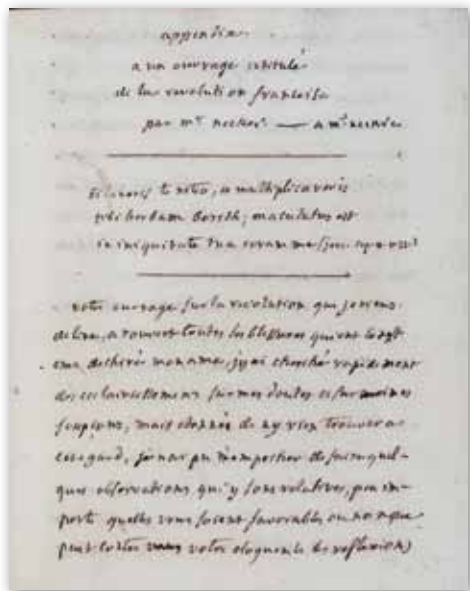 appendix
a un ouvrage intitulé
de la revolution françoise
par mr necker — a mr necker
si laveris te nitro, et multiplicaveris
tibi herbam borith, maculatus es
in iniquitate tua coram me
votre ouvrage sur la revolution que je viens
de lire, a rouvert toutes les blessures qui ont longt
ems dechiré mon ame, j'y ai cherché rapidement
des eclaircissemens sur mes doutes et sur moines
soupçons, mais etonnée de n'y rien trouver a
cet egard, je n'ai pu m'empecher de faire quel-
ques observations qui y sont relatives, peu im-
porte quelles vous soient favorables ou non que
peut votre eloquente des reflexions